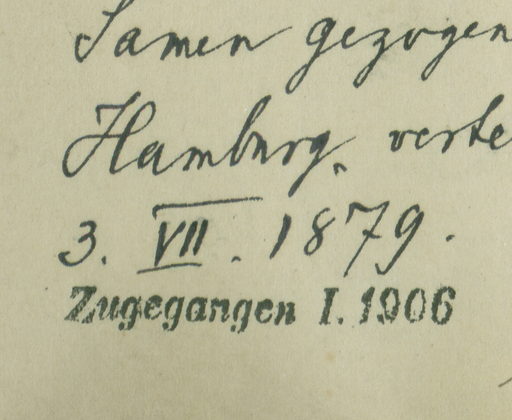 Samen gezogen
Hamburg, verte
3. VII. 1879.
Zugegangen I. 1906